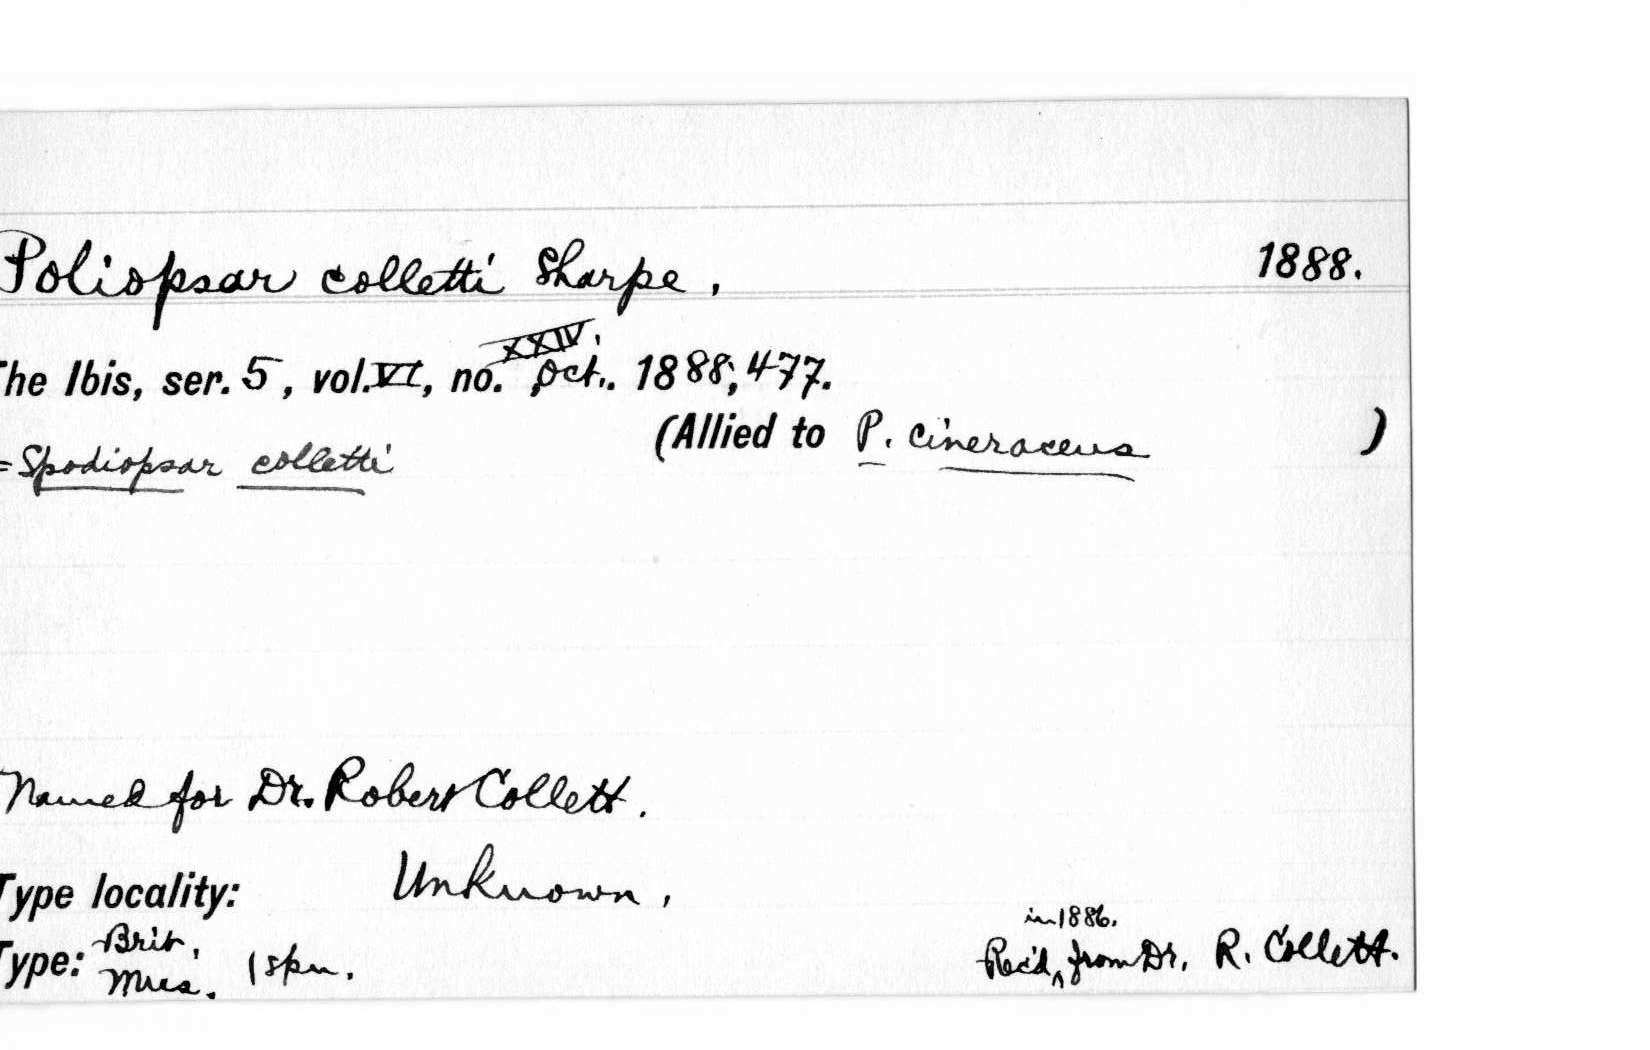 Poliopsar colletti Sharpe, 1888.
The Ibis, ser. 5, vol. VI, no. XXIV, Oct. 1888, 477.
(Allied to P. cineraceus )
=Spodiopsar colletti
Named for Dr. Robert Collett.
Type locality: Unknown.
Type: Brit. Mus. 1 spm. Rec'd in 1886. from Dr. R. Collett.